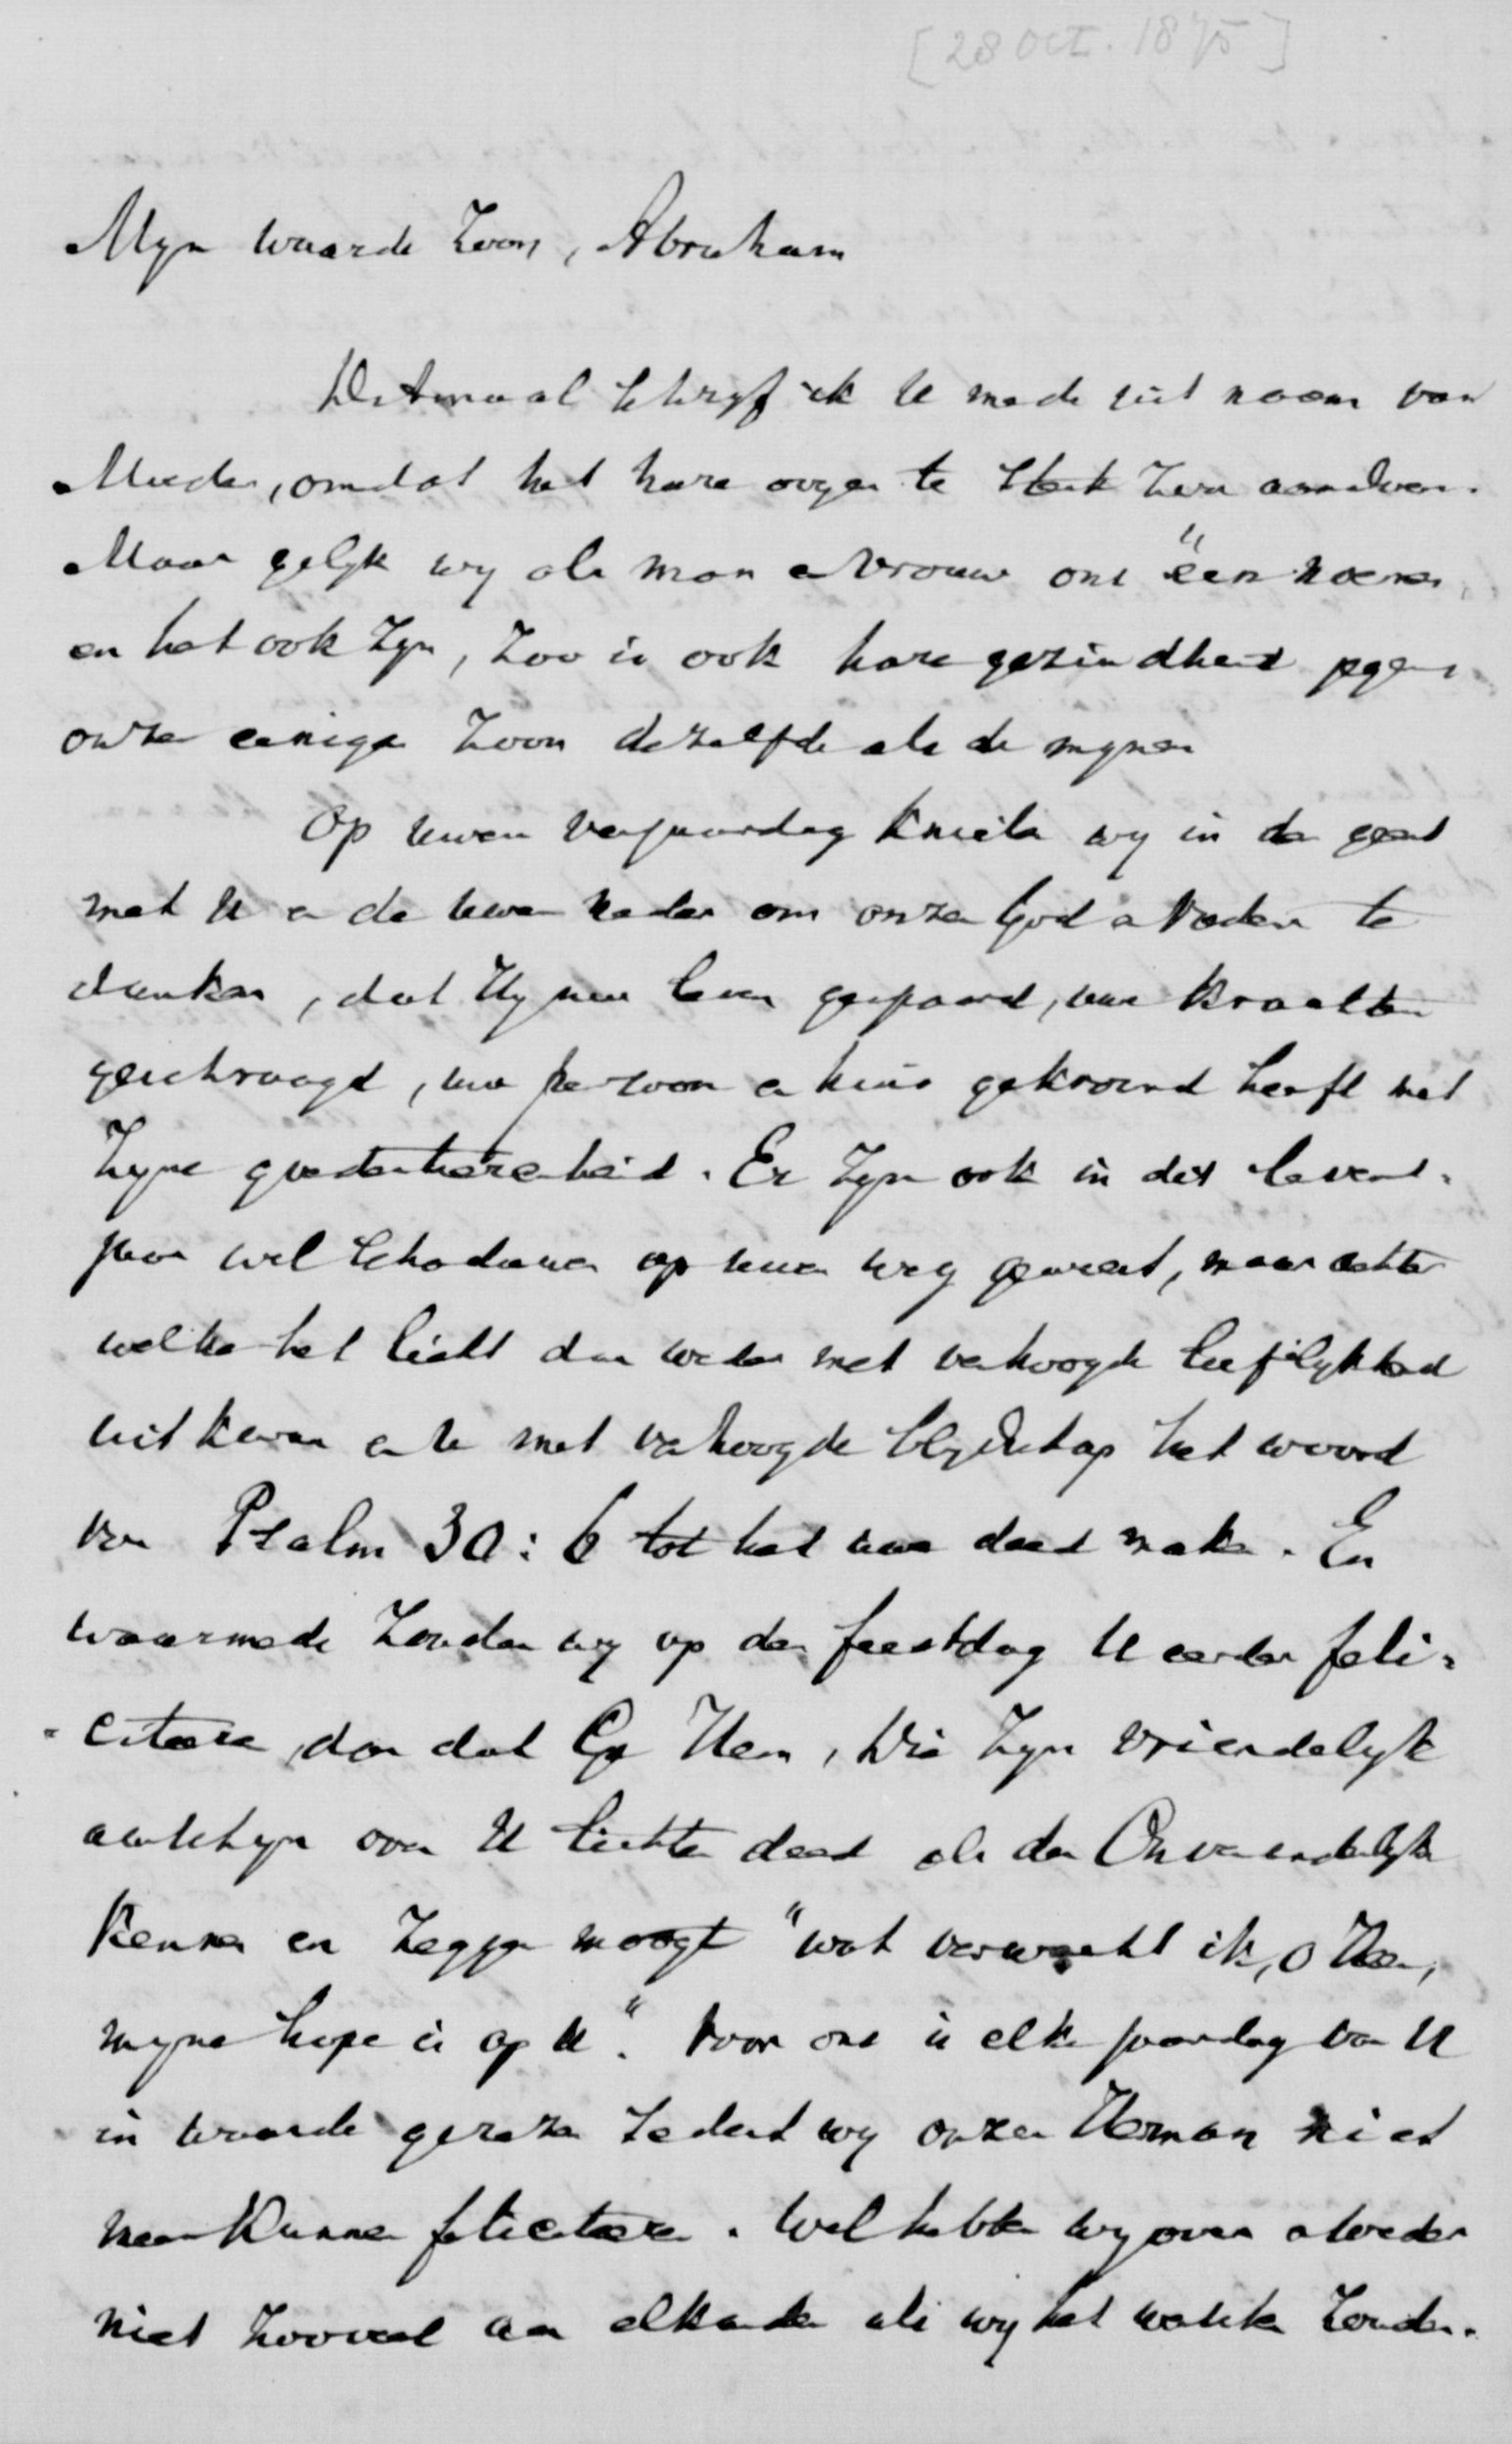 [28 Oct. 1875]
Mijn waarde Zoon, Abraham
Ditmaal schrijf ik U mede uit naam van
Moeder, omdat het hare oogen te sterk zou aandoen.
Maar gelijk wij als man en vrouw ons één noemen,
en het ook zijn, zoo is ook hare gezindheid jegens
onzen eenigen Zoon dezelfde als de mijnen
Op uwen verjaardag knielen wij in den geest
met U en de uwen neder om onzen God en Vader te
danken, dat Hij uw leven gespaard, uwe krachten
geschraagd, uw persoon en huis gekroond heeft met
Zijne goedertierenheid. Er zijn ook in dit levens-
jaar wel schaduwen op uwen weg geweest, maar achter
welke het licht dan weder met verhoogde liefelijkheid
uit kwam en U met verhoogde blijdschap het woord
van Psalm 30:6 tot het uwe deed maken. En
waarmede zouden wij op den feestdag U eerder feli-
-citeere, dan dat Gij Hem, Die Zijn vriendelijk
aanschijn over U lichten deed als den Onveranderlijke
kennen en zeggen moogt "wat verwacht ik, o Heer,
mijne hope is op U". Voor ons is elke jaardag van U
in waarde gerezen sedert wij onzen Herman niet
meer kunnen feliciteeren. Wel hebben wij over en weder
niet zooveel aan elkander als wij het wel zouden